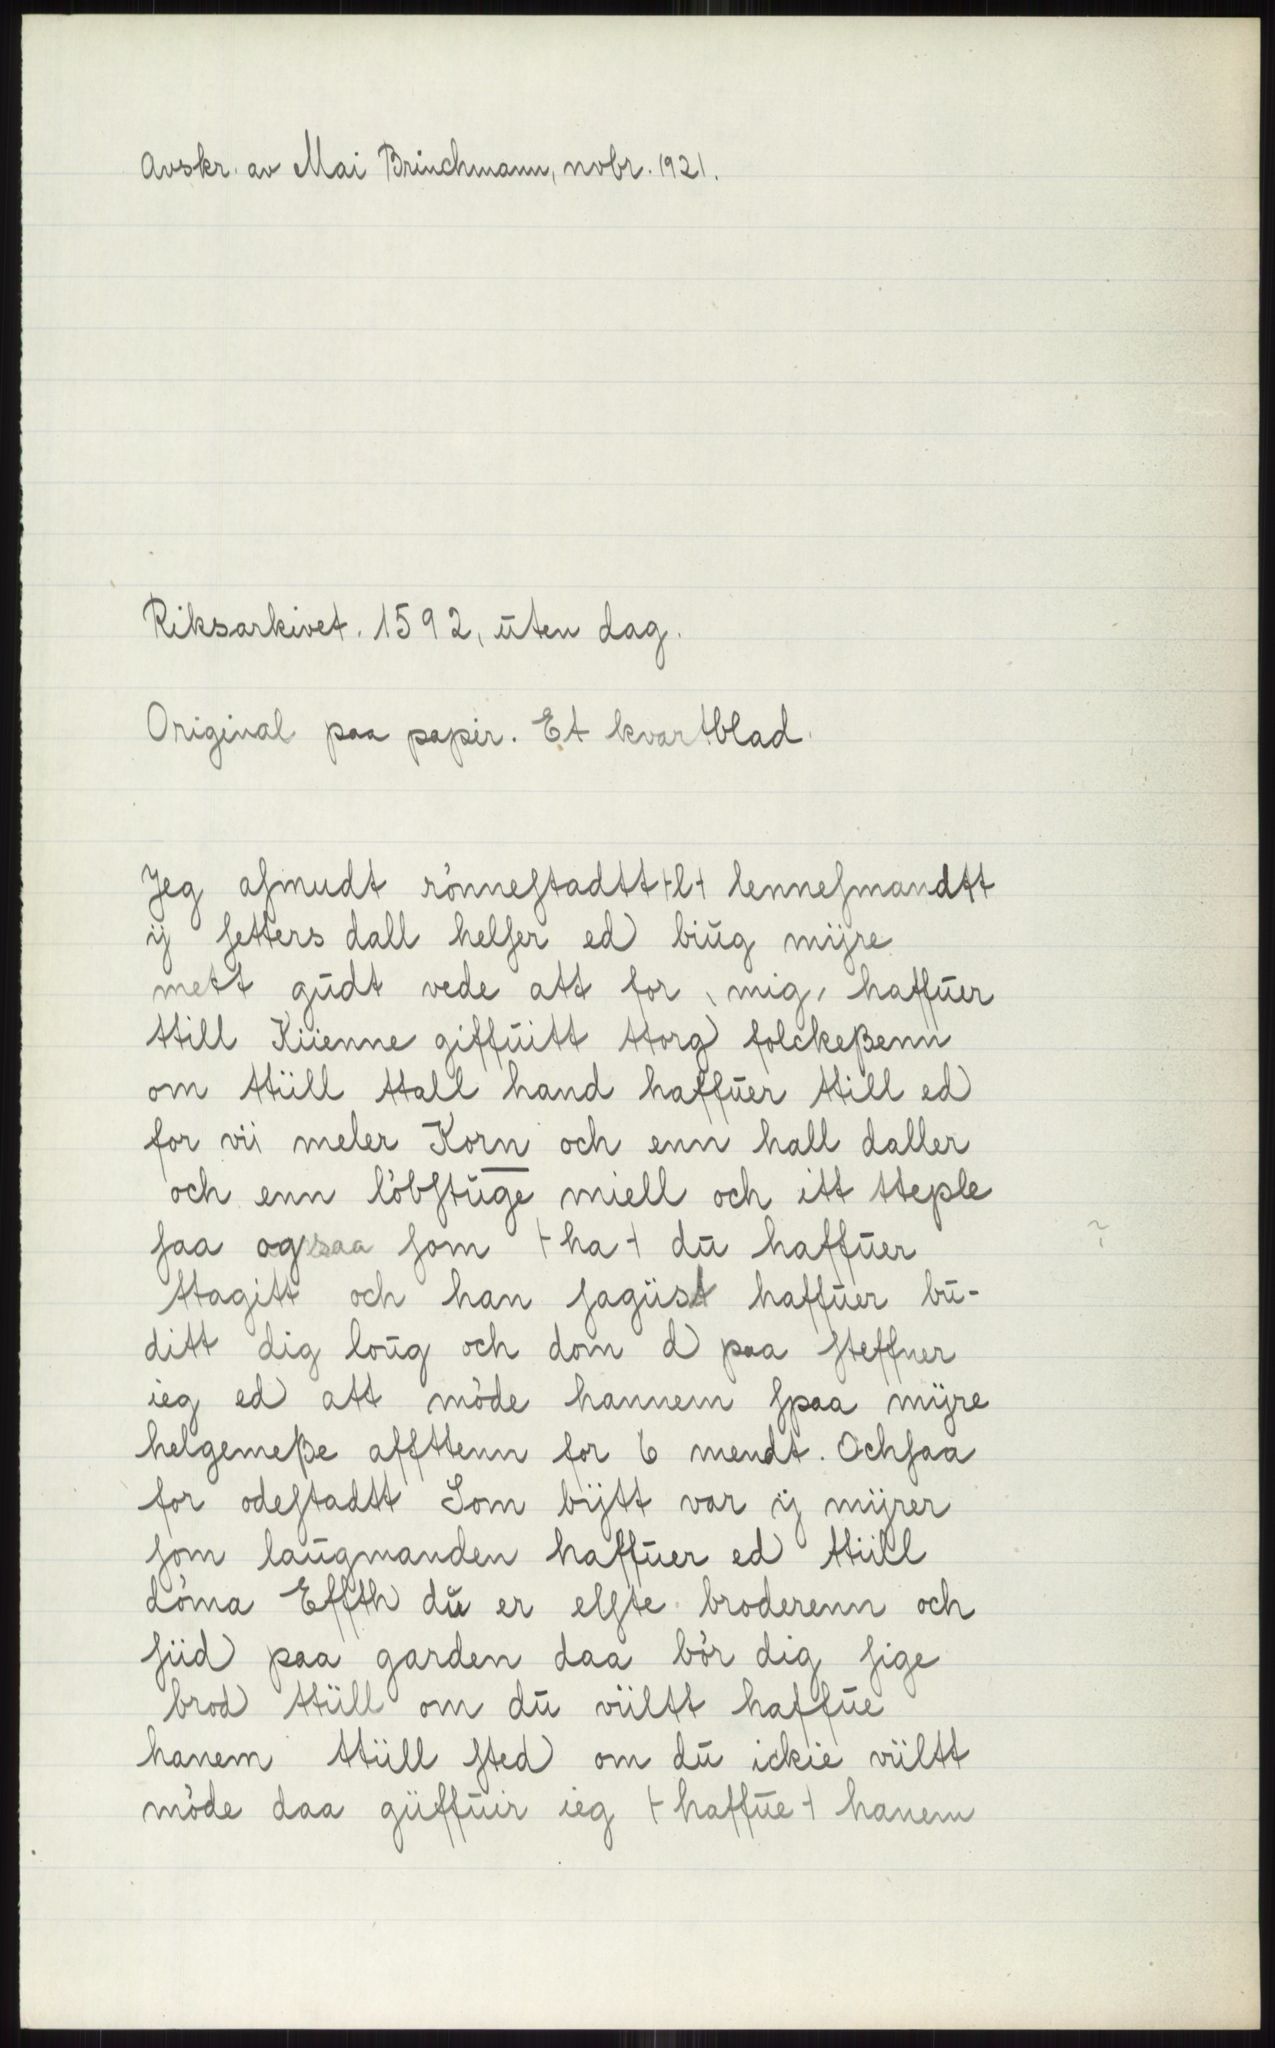 Avskr. av Mai Brinchmann, nvbr. 1921.
Riksarkivet. 1592, uten dag.
Original paa papir. Et kvartblad.
Jeg asmudt rönnestadtt ⊢l⊣ lennesmandtt
ij setters dall helser ed biug mijre
mett gudt vede att for ˎmigˏ haffuer
ttill Kiienne giffuitt ttorg folckeßenn
om ttüll ttall hand haffuer ttill ed
for vii meler Korn och enn hall daller
och enn löbstuge miell och itt tteple
saa ogsaa som ⊢ha⊣ du haffuer ?
ttagitt och han sagüst haffuer bu-
ditt dig loug och dom d paa steffner
ieg ed att möde hannem spaa mijre
helgemeße affttenn for 6 mendt. Ochsaa
for odestadtt Som bijtt var ij mijrer
som laugmanden haffuer ed ttüll
döma Effth du er elste broderenn och
siid paa garden daa bör dig sige
brod ttüll om du vültt haffue
hanem ttüll sted om du ickie vültt
möde daa güffuir ieg ⊢haffue⊣ hanem